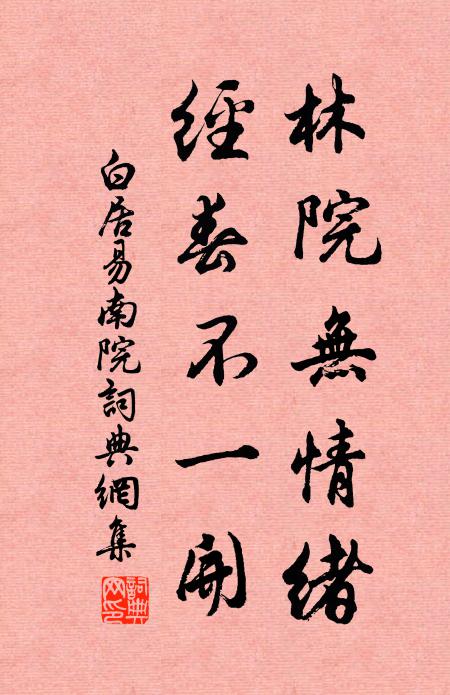 林院無情緒
經春不一開
白居易南院詞典網集
詞典網印